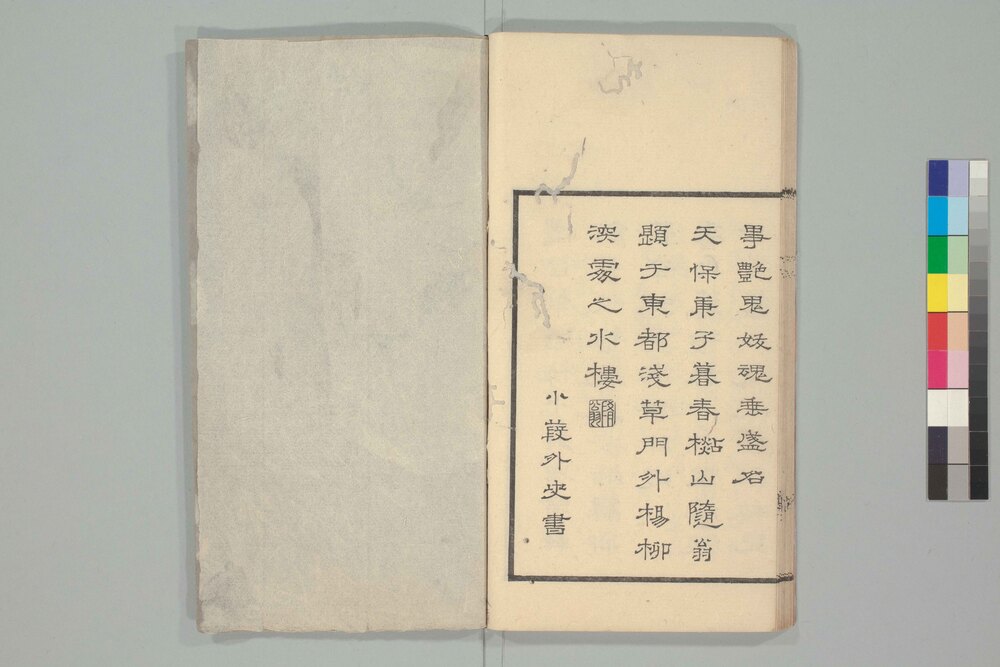 事艶鬼妓魂垂盛名
天保庚子暮春山隨翁
題于東都淺草門外楊柳
深處之水樓
小外史書